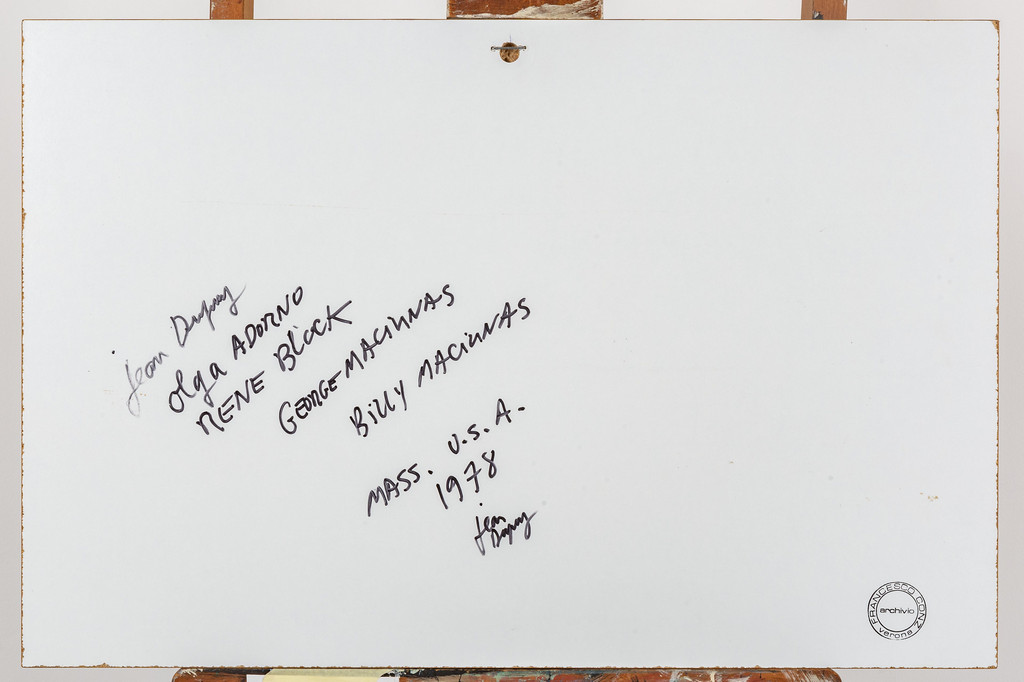 Jean Dupuy
Olga ADORNO
RENE BLOCK
GEORGE MACIUNAS
BILLY MACIUNAS
MASS. U.S.A.
1978
Jean
Dupuy
FRANCESCO CONZ
archivio
verona